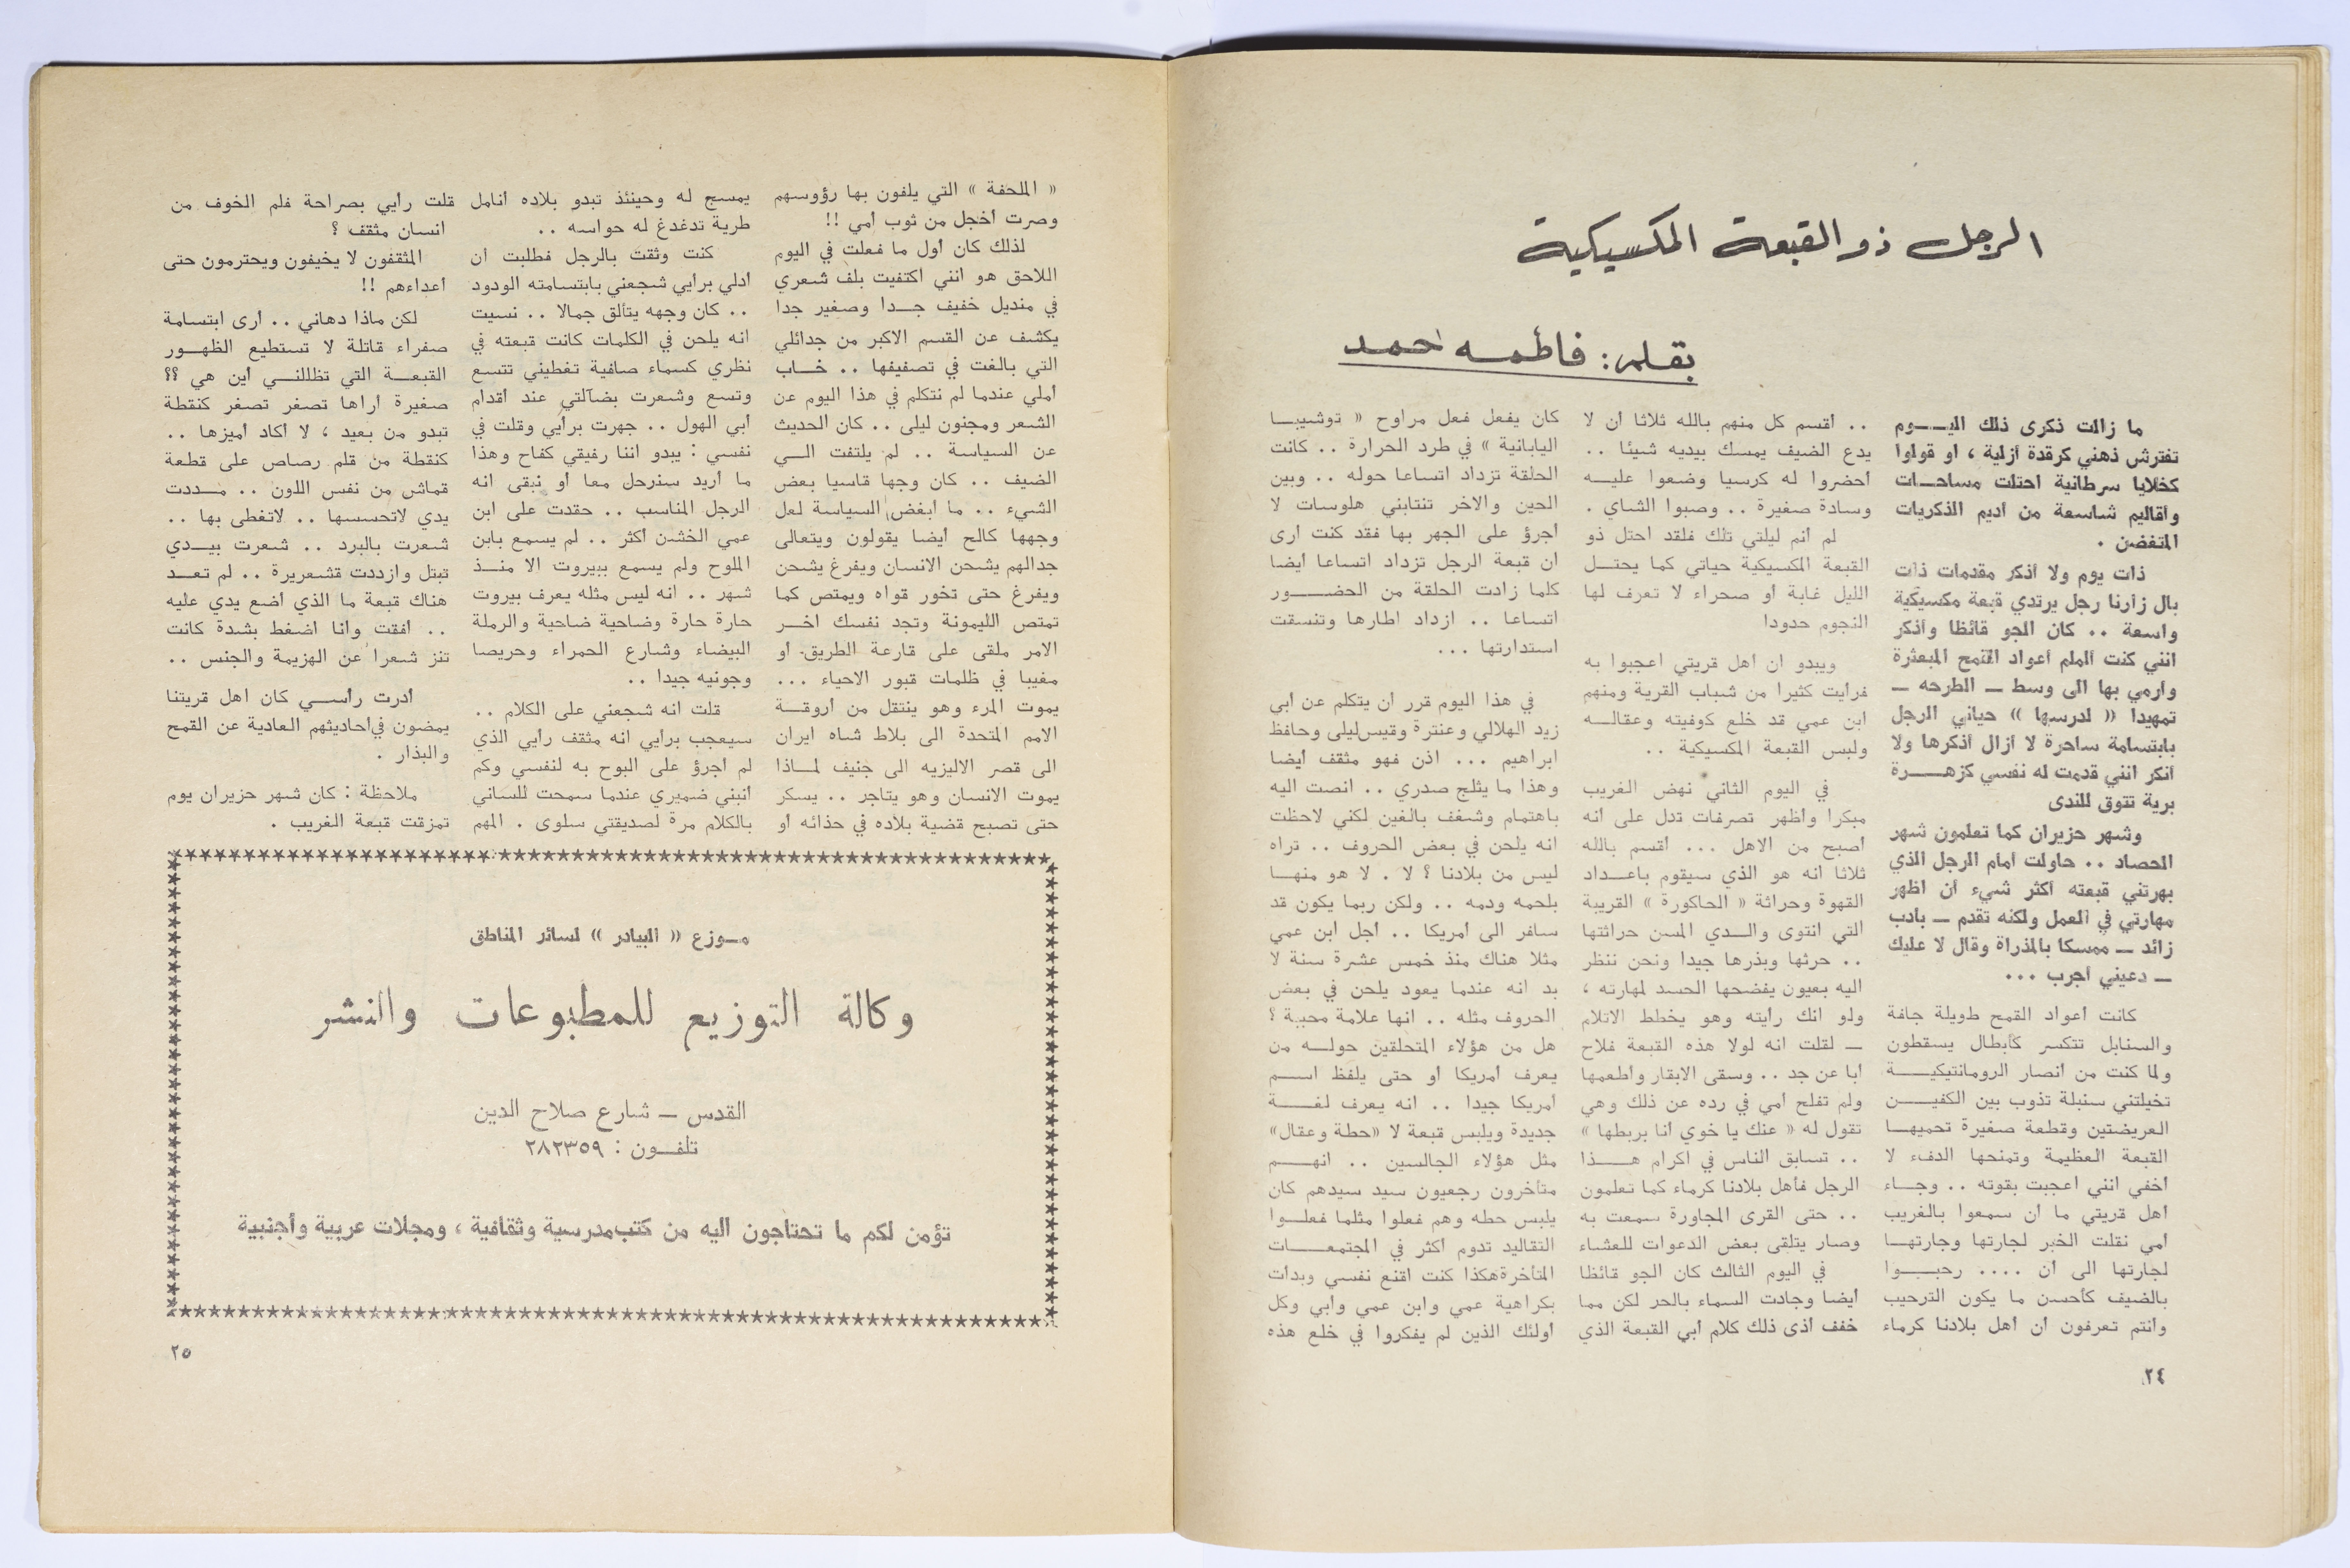 الرجل ذو القبعة المكسيكية
بقلم : فاطمه احمد
ما زالت ذكرى ذلك اليـــوم
تفترش ذهني كرقدة أزلية ، أو قولوا
كخلايا سرطانية احتلت مساحــات
وأقاليم شاسعة من أديم الذكريات
المتغضن .
ذات يوم ولا أذكر مقدمات ذات
بال زارنا رجل يرتدي قبعة مكسيكية
واسعة .. كان الجو قائظا وأذكر
انني كنت ألملم أعواد القمح المبعثرة
وارمي بها الى وسط ــ الطرحه ــ
تمهيدا « لدرسها » حياني الرجل
بابتسامة ساحرة لا أزال أذكرها ولا
أنكر انني قدمت له نفسي كزهـــرة
برية تتوق للندى
وشهر حزيران كما تعلمون شهر
الحصاد .. حاولت أمام الرجل الذي
بهرتني قبعته أكثر شيء أن أظهر
مهارتي في العمل ولكنه تقدم ــ بأدب
زائد ــ ممسكا بالمذراة وقال لا عليك
ــ دعيني أجرب ...
كانت أعواد القمح طويلة جافة
والسنابل تتكسر كأبطال يسقطون
ولما كنت من أنصار الرومانتيكيـــة
تخيلتني سنبلة تذوب بين الكفيـــن
العريضتين وقطعة صغيرة تحميهــا
القبعة العظيمة وتمنحها الدفء لا
أخفي انني أعجبت بقوته .. وجــاء
أهل قريتي ما أن سمعوا بالغريب
أمي نقلت الخبر لجارتها وجارتهــا
لجارتها الى أن .... رحبـــوا
بالضيف كأحسن ما يكون الترحيب
وأنتم تعرفون أن أهل بلادنا كرماء
.. أقسم كل منهم بالله ثلاثا أن لا
يدع الضيف يمسك بيديه شيئا ..
أحضروا له كرسيا وضعوا عليـــه
وسادة صغيرة .. وصبوا الشاي .
لم أنم ليلتي تلك فلقد احتل ذو
القبعة المكسيكية حياتي كما يحتــل
الليل غابة أو صحراء لا تعرف لها
النجوم حدودا
ويبدو أن أهل قريتي أعجبوا به
فرأيت كثيرا من شباب القرية ومنهم
ابن عمي قد خلع كوفيته وعقالــه
ولبس القبعة المكسيكية ..
في اليوم الثاني نهض الغريب
مبكرا وأظهر تصرفات تدل على أنه
أصبح من الاهل ... أقسم بالله
ثلاثا أنه هو الذي سيقوم باعــداد
القهوة وحراثة « الحاكورة » القريبة
التي انتوى والــدي المسن حراثتها
.. حرثها وبذرها جيدا ونحن ننظر
اليه بعيون يفضحها الحسد لمهارته ،
ولو انك رأيته وهو يخطط الاتلام
ــ لقلت أنه لولا هذه القبعة فلاح
أبا عن جد .. وسقى الابقار وأطعمها
ولم تفلح أمي في رده عن ذلك وهي
تقول له « عنك يا خوي أنا بربطها »
.. تسابق الناس في اكرام هـــذا
الرجل فأهل بلادنا كرماء كما تعلمون
.. حتى القرى المجاورة سمعت به
وصار يتلقى بعض الدعوات للعشاء
في اليوم الثالث كان الجو قائظا
أيضا وجادت السماء بالحر لكن مما
خفف أذى ذلك كلام أبي القبعة الذي
كان يفعل فعل مراوح « توشيبــا
اليابانية » في طرد الحرارة .. كانت
الحلقة تزداد اتساعا حوله .. وبين
الحين والاخر تنتابني هلوسات لا
أجرؤ على الجهر بها فقد كنت أرى
أن قبعة الرجل تزداد اتساعا أيضا
كلما زادت الحلقة من الحضـــور
اتساعا .. ازداد اطارها وتنسقت
استدارتها ...
في هذا اليوم قرر أن يتكلم عن أبي
زيد الهلالي وعنترة وقيس ليلى وحافظ
ابراهيم ... اذن فهو مثقف أيضا
وهذا ما يثلج صدري .. أنصت اليه
باهتمام وشغف بالغين لكني لاحظت
انه يلحن في بعض الحروف .. تراه
ليس من بلادنا ؟ لا . لا هو منهــا
بلحمه ودمه .. ولكن ربما يكون قد
سافر الى أمريكا .. أجل ابن عمي
مثلا هناك منذ خمس عشرة سنة لا
بد انه عندما يعود يلحن في بعض
الحروف مثله .. انها علامة محببة ؟
هل من هؤلاء المتحلقين حولــه من
يعرف أمريكا أو حتى يلفظ اســم
أمريكا جيدا .. انه يعرف لغـــة
جديدة ويلبس قبعة لا «حطة وعقال»
مثل هؤلاء الجالسين .. انهـــم
متأخرون رجعيون سيد سيدهم كان
يلبس حطه وهم فعلوا مثلما فعلــوا
التقاليد تدوم أكثر في المجتمعـــات
المتأخرة هكذا كنت أقنع نفسي وبدأت
بكراهية عمي وابن عمي وأبي وكل
أولئك الذين لم يفكروا في خلع هذه
٢٤
« الملحفة » التي يلفون بها رؤوسهم
وصرت أخجل من ثوب أمي !!
لذلك كان أول ما فعلت في اليوم
اللاحق هو أنني اكتفيت بلف شعري
في منديل خفيف جــدا وصغير جدا
يكشف عن القسم الاكبر من جدائلي
التي بالغت في تصفيفها .. خــاب
أملي عندما لم نتكلم في هذا اليوم عن
الشعر ومجنون ليلى .. كان الحديث
عن السياسة .. لم يلتفت الــي
الضيف .. كان وجها قاسيا بعض
الشيء .. ما أبغض السياسة لعل
وجهها كالح أيضا يقولون ويتعالى
جدالهم يشحن الانسان ويفرغ يشحن
ويفرغ حتى تخور قواه ويمتص كما
تمتص الليمونة وتجد نفسك أخــر
الامر ملقى على قارعة الطريق أو
مغيبا في ظلمات قبور الاحياء ...
يموت المرء وهو ينتقل من أروقــة
الامم المتحدة الى بلاط شاه ايران
الى قصر الاليزيه الى جنيف لمــاذا
يموت الانسان وهو يتاجر .. يسكر
حتى تصبح قضية بلاده في حذائه أو
يمسج له وحينئذ تبدو بلاده أنامل
طرية تدغدغ له حواسه ..
كنت وثقت بالرجل فطلبت أن
أدلي برأيي شجعني بابتسامته الودود
.. كان وجهه يتألق جمالا .. نسيت
انه يلحن في الكلمات كانت قبعته في
نظري كسماء صافية تغطيني تتسع
وتسع وشعرت بضآلتي عند أقدام
أبي الهول .. جهرت برأيي وقلت في
نفسي : يبدو أننا رفيقي كفاح وهذا
ما أريد سنرحل معا أو نبقى انه
الرجل المناسب .. حقدت على ابن
عمي الخشن أكثر .. لم يسمع بابن
الملوح ولم يسمع ببيروت الا منــذ
شهر .. انه ليس مثله يعرف بيروت
حارة حارة وضاحية ضاحية والرملة
البيضاء وشارع الحمراء وحريصا
وجونيه جيدا ..
قلت انه شجعني على الكلام ..
سيعجب برأيي انه مثقف رأيي الذي
لم أجرؤ على البوح به لنفسي وكم
أنبني ضميري عندما سمحت للساني
بالكلام مرة لصديقتي سلوى . المهم
قلت رأيي بصراحة فلم الخوف من
انسان مثقف ؟
المثقفون لا يخيفون ويحترمون حتى
أعداءهم !!
لكن ماذا دهاني .. أرى ابتسامة
صفراء قاتلة لا تستطيع الظهــور
القبعــة التي تظللنــي أين هي ؟؟
صغيرة أراها تصغر تصغر كنقطة
تبدو من بعيد ، لا أكاد أميزها ..
كنقطة من قلم رصاص على قطعة
قماش من نفس اللون .. مــددت
يدي لاتحسسها .. لاتغطى بها ..
شعرت بالبرد .. شعرت بيــدي
تبتل وازددت قشعريرة .. لم تعــد
هناك قبعة ما الذي أضع يدي عليه
.. أفقت وأنا أضغط بشدة كانت
تنز شعرا عن الهزيمة والجنس ..
أدرت رأســي كان أهل قريتنا
يمضون في أحاديثهم العادية عن القمح
والبذار .
ملاحظة : كان شهر حزيران يوم
تمزقت قبعة الغريب .
مــوزع « البيادر » لسائر المناطق
وكالة التوزيع للمطبوعات والنشر
القدس ــ شارع صلاح الدين
تلفــون : ٢٨٢٣٥٩
تؤمن لكم ما تحتاجون اليه من كتب مدرسية وثقافية ، ومجلات عربية وأجنبية
٢٥